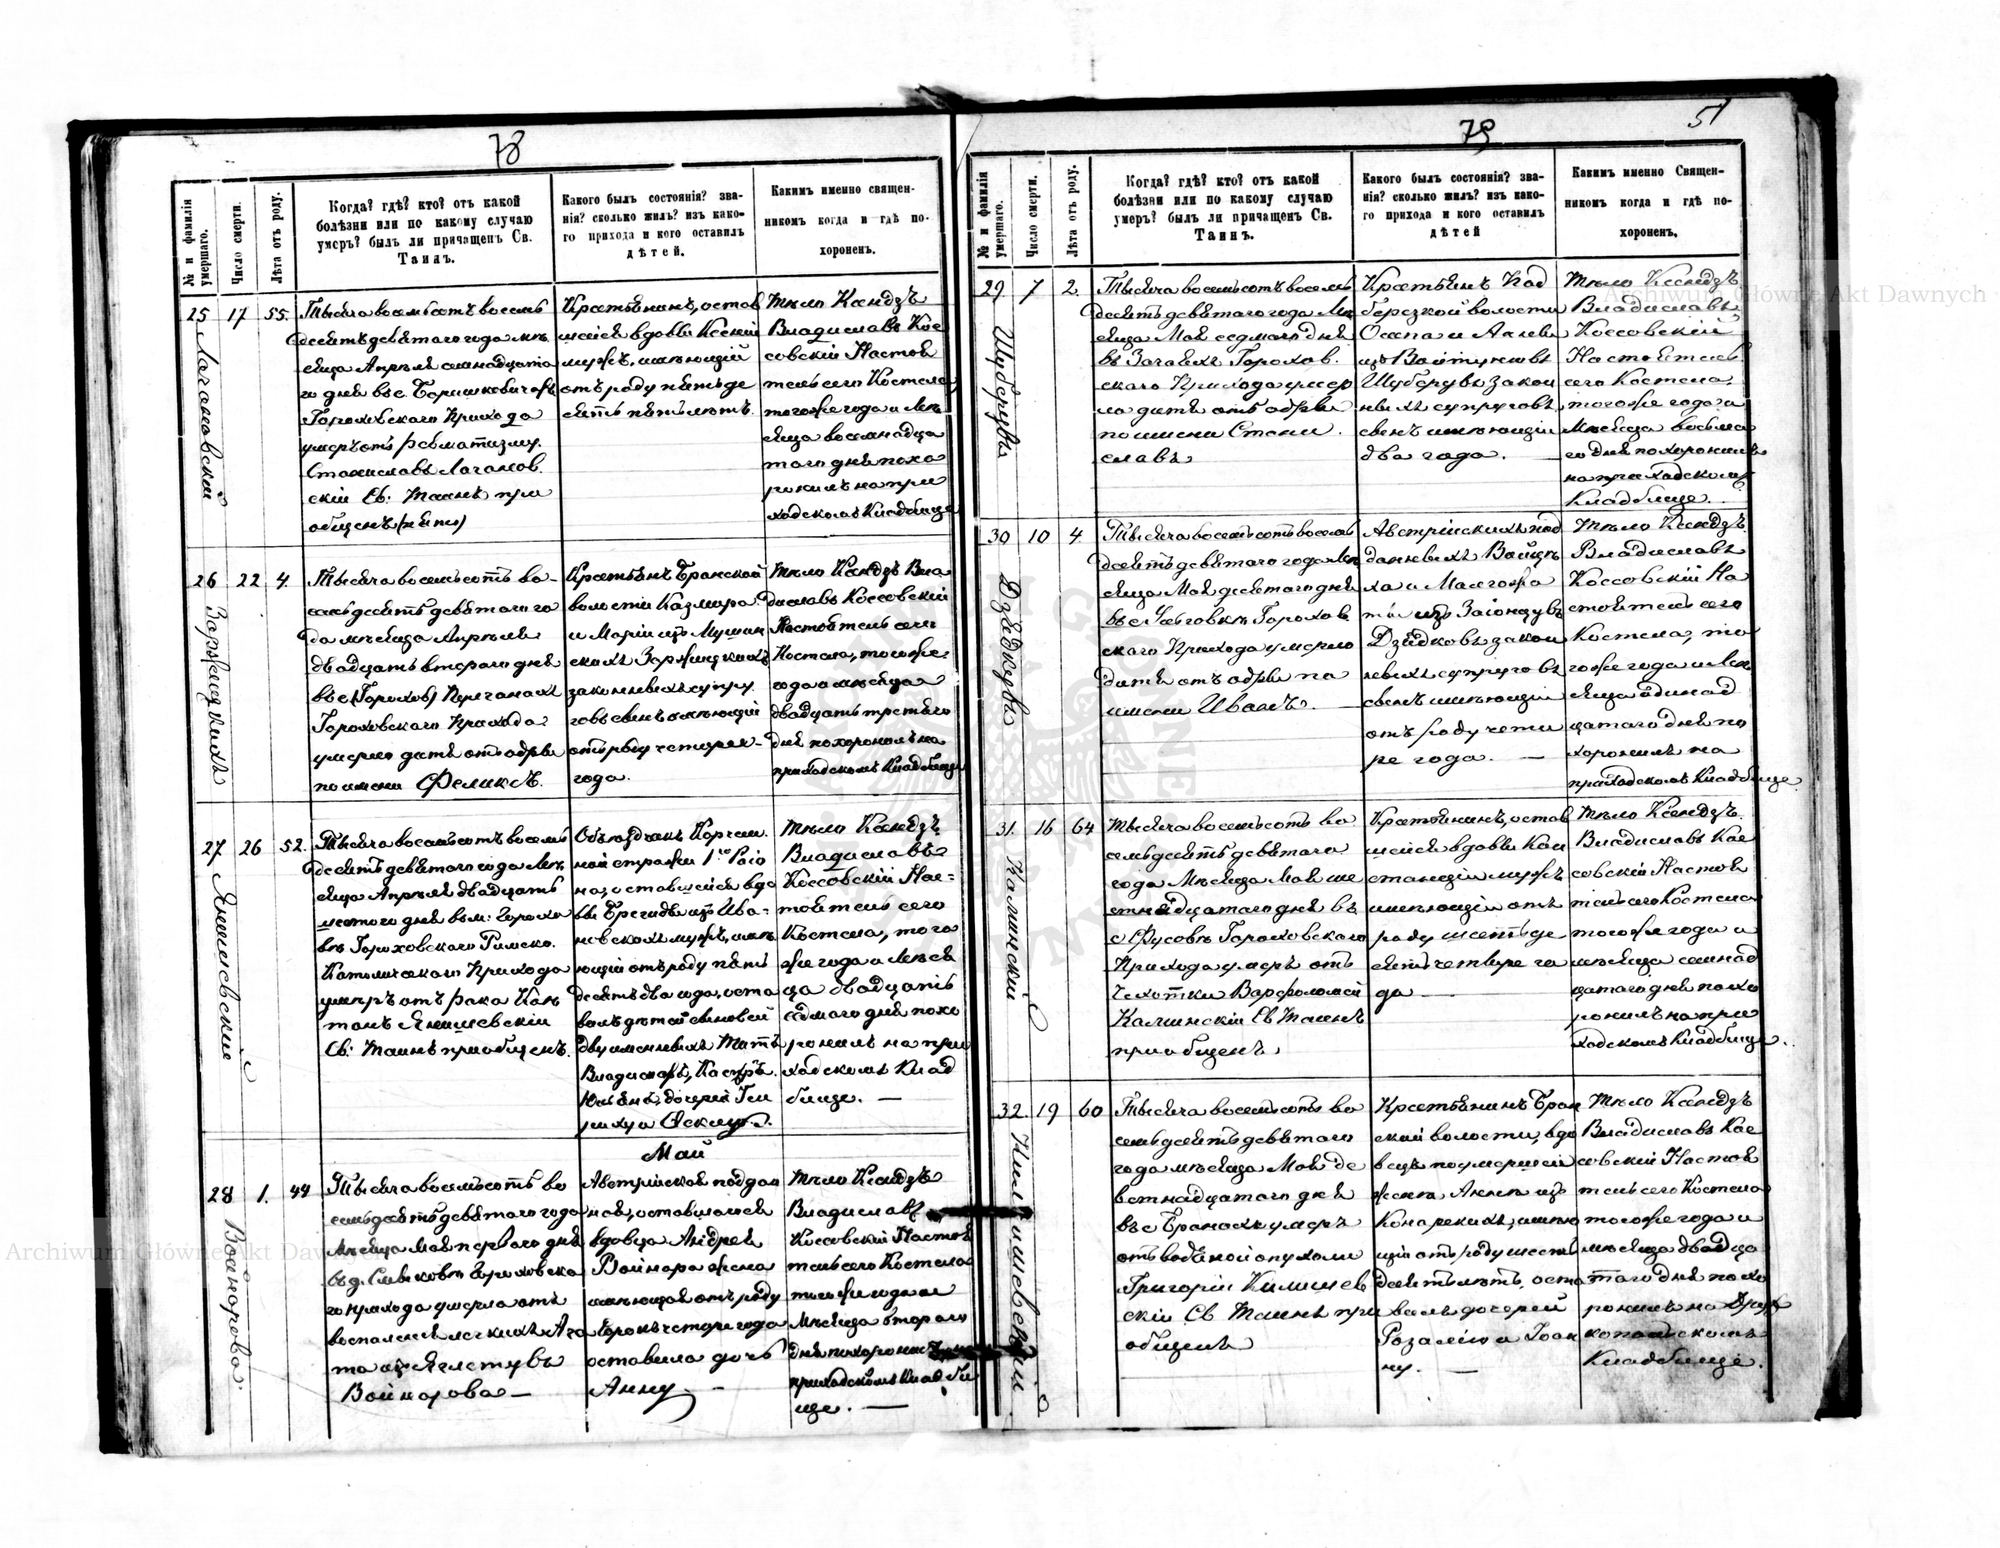 78
№ и фамилія умершаго.
Число смерти.
Лѣта отъ роду.
Когда? гдѣ? кто? отъ какой
болѣзни или по какому случаю
умеръ? былъ ли причащенъ Св.
Таинъ.
Какого былъ состоянія? зва-
нія? сколько жилъ? изъ како-
го прихода и кого оставилъ
дѣтей.
Какимъ именно священ-
никомъ когда и гдѣ по-
хороненъ.
25
17
55.
Тысяча восемьсотъ восемь
десятъ девятого года мѣ
сяца Апрѣля семнадцато
го дня в с Боришковичахъ
Гороховского Прихода
умеръ отъ ревматизму
Станиславъ
скій Св: Таинъ при
общенъ
Крестьянинъ, остав
шейся вдовы Ксеніи
мужъ, имѣющій
отъ роду пятьде
сятъ пять лѣтъ.
Тѣло Ксендзъ
Владиславъ Кос
совскій Настоя
тель сего Костела
тогоже года и Мѣ
сяца восемнадца
того дня похо
ронилъ на при
ходскомъ Кладбище
26
22
4.
Заржицкихъ
Тысяча восемьсотъ во-
семьдесятъ девятого го
да мѣсяца Апрѣля
двадцать второго дня
въ с (Горохов) Перечанахъ
Гороховского Прихода
умерло дитя отъ одры
по имени Феликсъ.
Крестьянъ Бранской
волости Казмира
и Маріи изъ Мушин
скихъ Заржицкихъ
законныхъ супру
говъ сынъ имѣющій
отъ роду четыре-
года.
Тѣло Ксендзъ Вла
диславъ Коссовскій
Настоятель сего
Костела, тогоже-
года и мѣсяца
двадцать третьяго
дня похоронилъ на
приходскомъ Кладбище
27
26
52.
Янишевскій
Тысяча восемьсотъ восемь
десятъ девятого года мѣ
сяца Апрѣля двадцать
шестого дня въ м: Горохо
вѣ Гороховского Римско.
Католическаго Прихода
умеръ отъ рака Каэ
танъ Янишевскій
Св: Таинъ приобщенъ.
Объѣздчикъ Корчем
ной стражи 1го Раіо
на, оставшейся вдо
вы Бригиды изъ Ива-
новскихъ мужъ, имѣ
ющій отъ роду пять
десятъ два года, оста
вилъ дѣтей сыновей
двуименныхъ
Владиславъ,
дочерей Ген
Тѣло Ксендзъ
Владиславъ
Коссовскій Нас=
тоятель сего
Костела, того
же года и Мѣся
ца двадцать
седмого дня похо
ронилъ на при
ходскомъ Клад
бище. —
Май
28
1.
44
Войнорова.
Тысяча восемьсотъ во
семьдесятъ девятого года
Мѣсяца Мая первого дня
въ д. Смыковѣ Гороховска
го прихода умерла отъ
воспаленія легкихъ Ага
та изъ
Войнорова —
Австрійская поддан
ная, оставшагося
вдовца Андрея
Войнора жена
имѣющая отъ роду
сорокъ четыре года
оставила дочь
Анну —
Тѣло Ксендзъ
Владиславъ
Коссовскій Настоя
тель сего Костела
тогоже года и
Мѣсяца второго
дня похоронилъ на
приходскомъ Кладби
ще. —
79
51
№ и фамилія умершаго.
Число смерти.
Лѣта отъ роду.
Когда? гдѣ? кто? отъ какой
болѣзни или по какому случаю
умеръ? былъ ли причащенъ Св.
Таинъ.
Какого былъ состоянія? зва-
нія? сколько жилъ? изъ како-
го прихода и кого оставилъ
дѣтей
Какимъ именно Священ-
никомъ когда и гдѣ по-
хороненъ.
29
7
2.
Шуберувъ
Тысяча восемьсотъ восемь
десятъ девятого года Мѣ
сяца Мая седмого дня
въ Зачаяхъ Горохов.
ского Прихода умер
ло дитя отъ одры
по имени Стани.
славъ
Крестьянъ Под
березкой волости
Осипа и
изъ
Шуберувъ закон
ныхъ супруговъ
сынъ имѣющій
два года. —
Тѣло Ксендзъ
Владиславъ
Коссовскій
Настоятель
сего Костела.
тогоже года и
Мѣсяца восьмо
го дня похоронилъ
на приходскомъ
Кладбище.
30
10
4.
Дзядкувъ
Тысяча восемьсотъ восемь
десятъ девятого года Мѣ
сяца Мая десятого дня
въ с Уѣзовѣ Горохов
ского Прихода умерло
дитя отъ одры по
имени Иванъ. —
Австрійскихъ под
данныхъ Войцѣ
ха и Малгожа
ты изъ Заіонцувъ
Дзядковъ закон
ныхъ супруговъ
сынъ имѣющій
отъ роду четы
ре года. —
Тѣло Ксендзъ
Владиславъ
Коссовскій На
стоятель сего
Костела, то
гоже года и Мѣ
сяца одинад
цатаго дня по
хоронилъ на
приходскомъ Кладбище
31.
16
64
Калинскій
Тысяча восемьсотъ во
семьдесятъ девятого
года Мѣсяца Мая ше
стнадцатого дня въ
с Фусовѣ Гороховского
Прихода умеръ отъ
чехотки Варфоломей
Калинскій Св Таинъ
приобщенъ
Крестьянинъ, остав
шейся вдовы Кон
станціи мужъ
имѣющій отъ
роду шестьде
сятъ четыре го
да —
Тѣло Ксендзъ.
Владиславъ Кос
совскій Настоя
тель сего Костела
тогоже года и
мѣсяца семнад
цатого дня похо
ронилъ на при
ходскомъ Кладбище.
32.
19
60
Килишевскій
Тысяча восемьсотъ во
семьдесятъ девятого
года мѣсяца Мая де
вятнадцатого дня
въ с Бранахъ умеръ
отъ водяной опухоли
Григорій Килишев
скій Св Таинъ при
общенъ
Крестьянинъ Бран
ской волости, вдо
вецъ по умершей
женѣ Аннѣ изъ
Конарскихъ, имѣю
щій отъ роду шесть
десятъ лѣтъ, оста
вилъ дочерей
Розалію и Іоан
ну. —
Тѣло Ксендзъ
Владиславъ Кос
совскій Настоя
тель сего Костела
тогоже года и
мѣсяца двадца
того дня похо
ронилъ на
Кладбище.
Archiwum Główne Akt Dawnych
Archiwum Główne Akt Dawnych